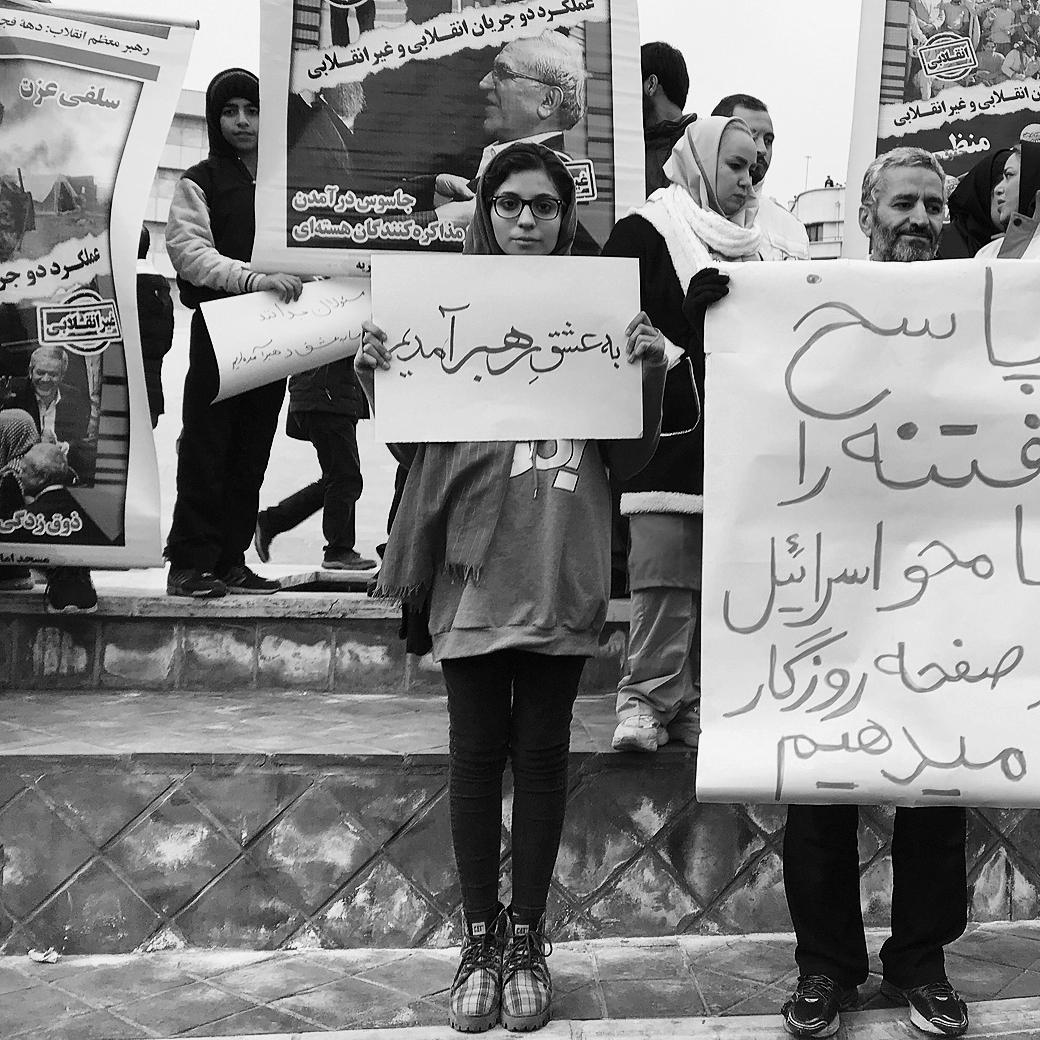 رهبر معظم انقلاب: دهه فج
سلفی عزت
عملکرد دو جر
غیرانقلابی
ذوق زدگی
مسجد اما
عملکرد دو جریان انقلابی و غیر انقلابی
جاسوس درآمدن
مذاکره کنندگان هسته‌ای
انقلابی
ن انقلابی و غیر انقلابی
منظ
مسئولان بدانند
به عشق رهبر آمدیم
پاسخ
فتنه را
ا محو اسرائیل
صفحه روزگار
میدهیم
CAT
CAT